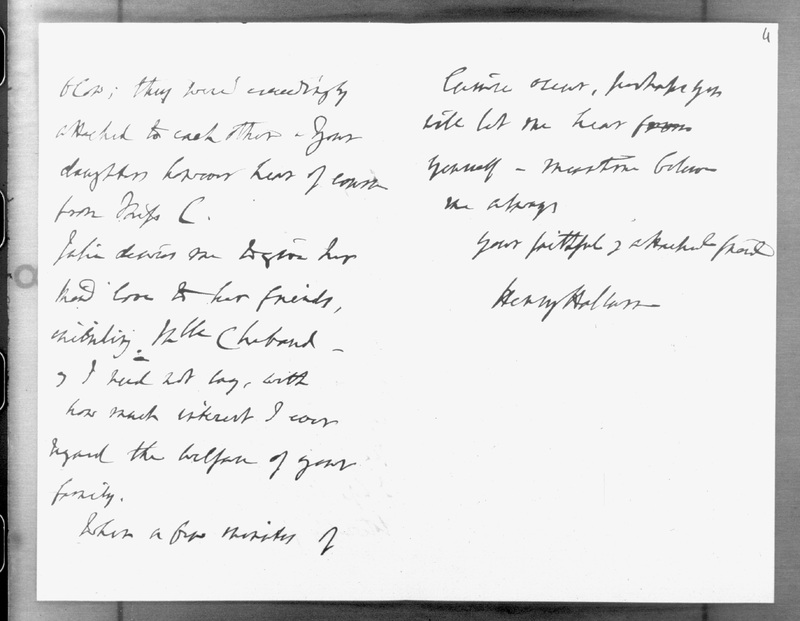 blow; they were exceedingly
attached to each other – Your
daughters however hear of course
from Miss C.
Julia desires me to give her
kind love to her friends,
including Mlle Chabaud –
& I need not say, with
how much interest I ever
regard the welfare of your
family.
When a few minutes of
4
leisure occur, perhaps you
will let me hear from
yourself – meantime believe
me always
your faithful & attached friend
Henry Hallam